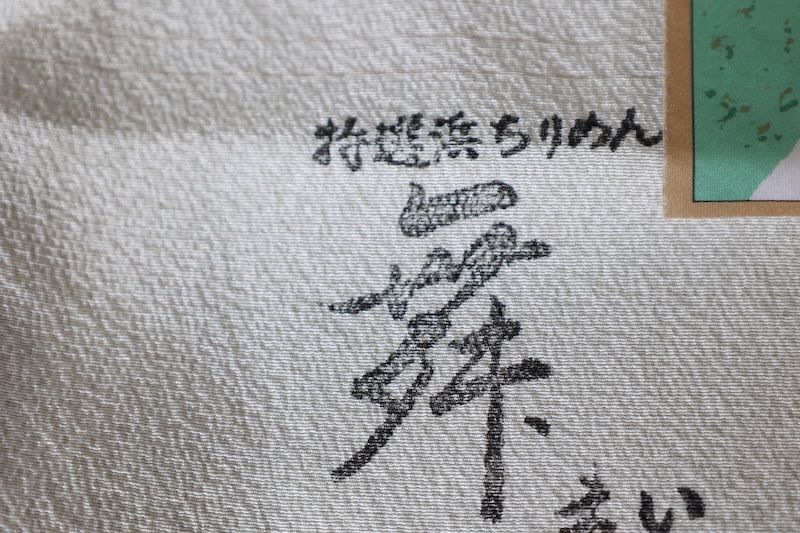 特選浜ちりめん
舞
まい